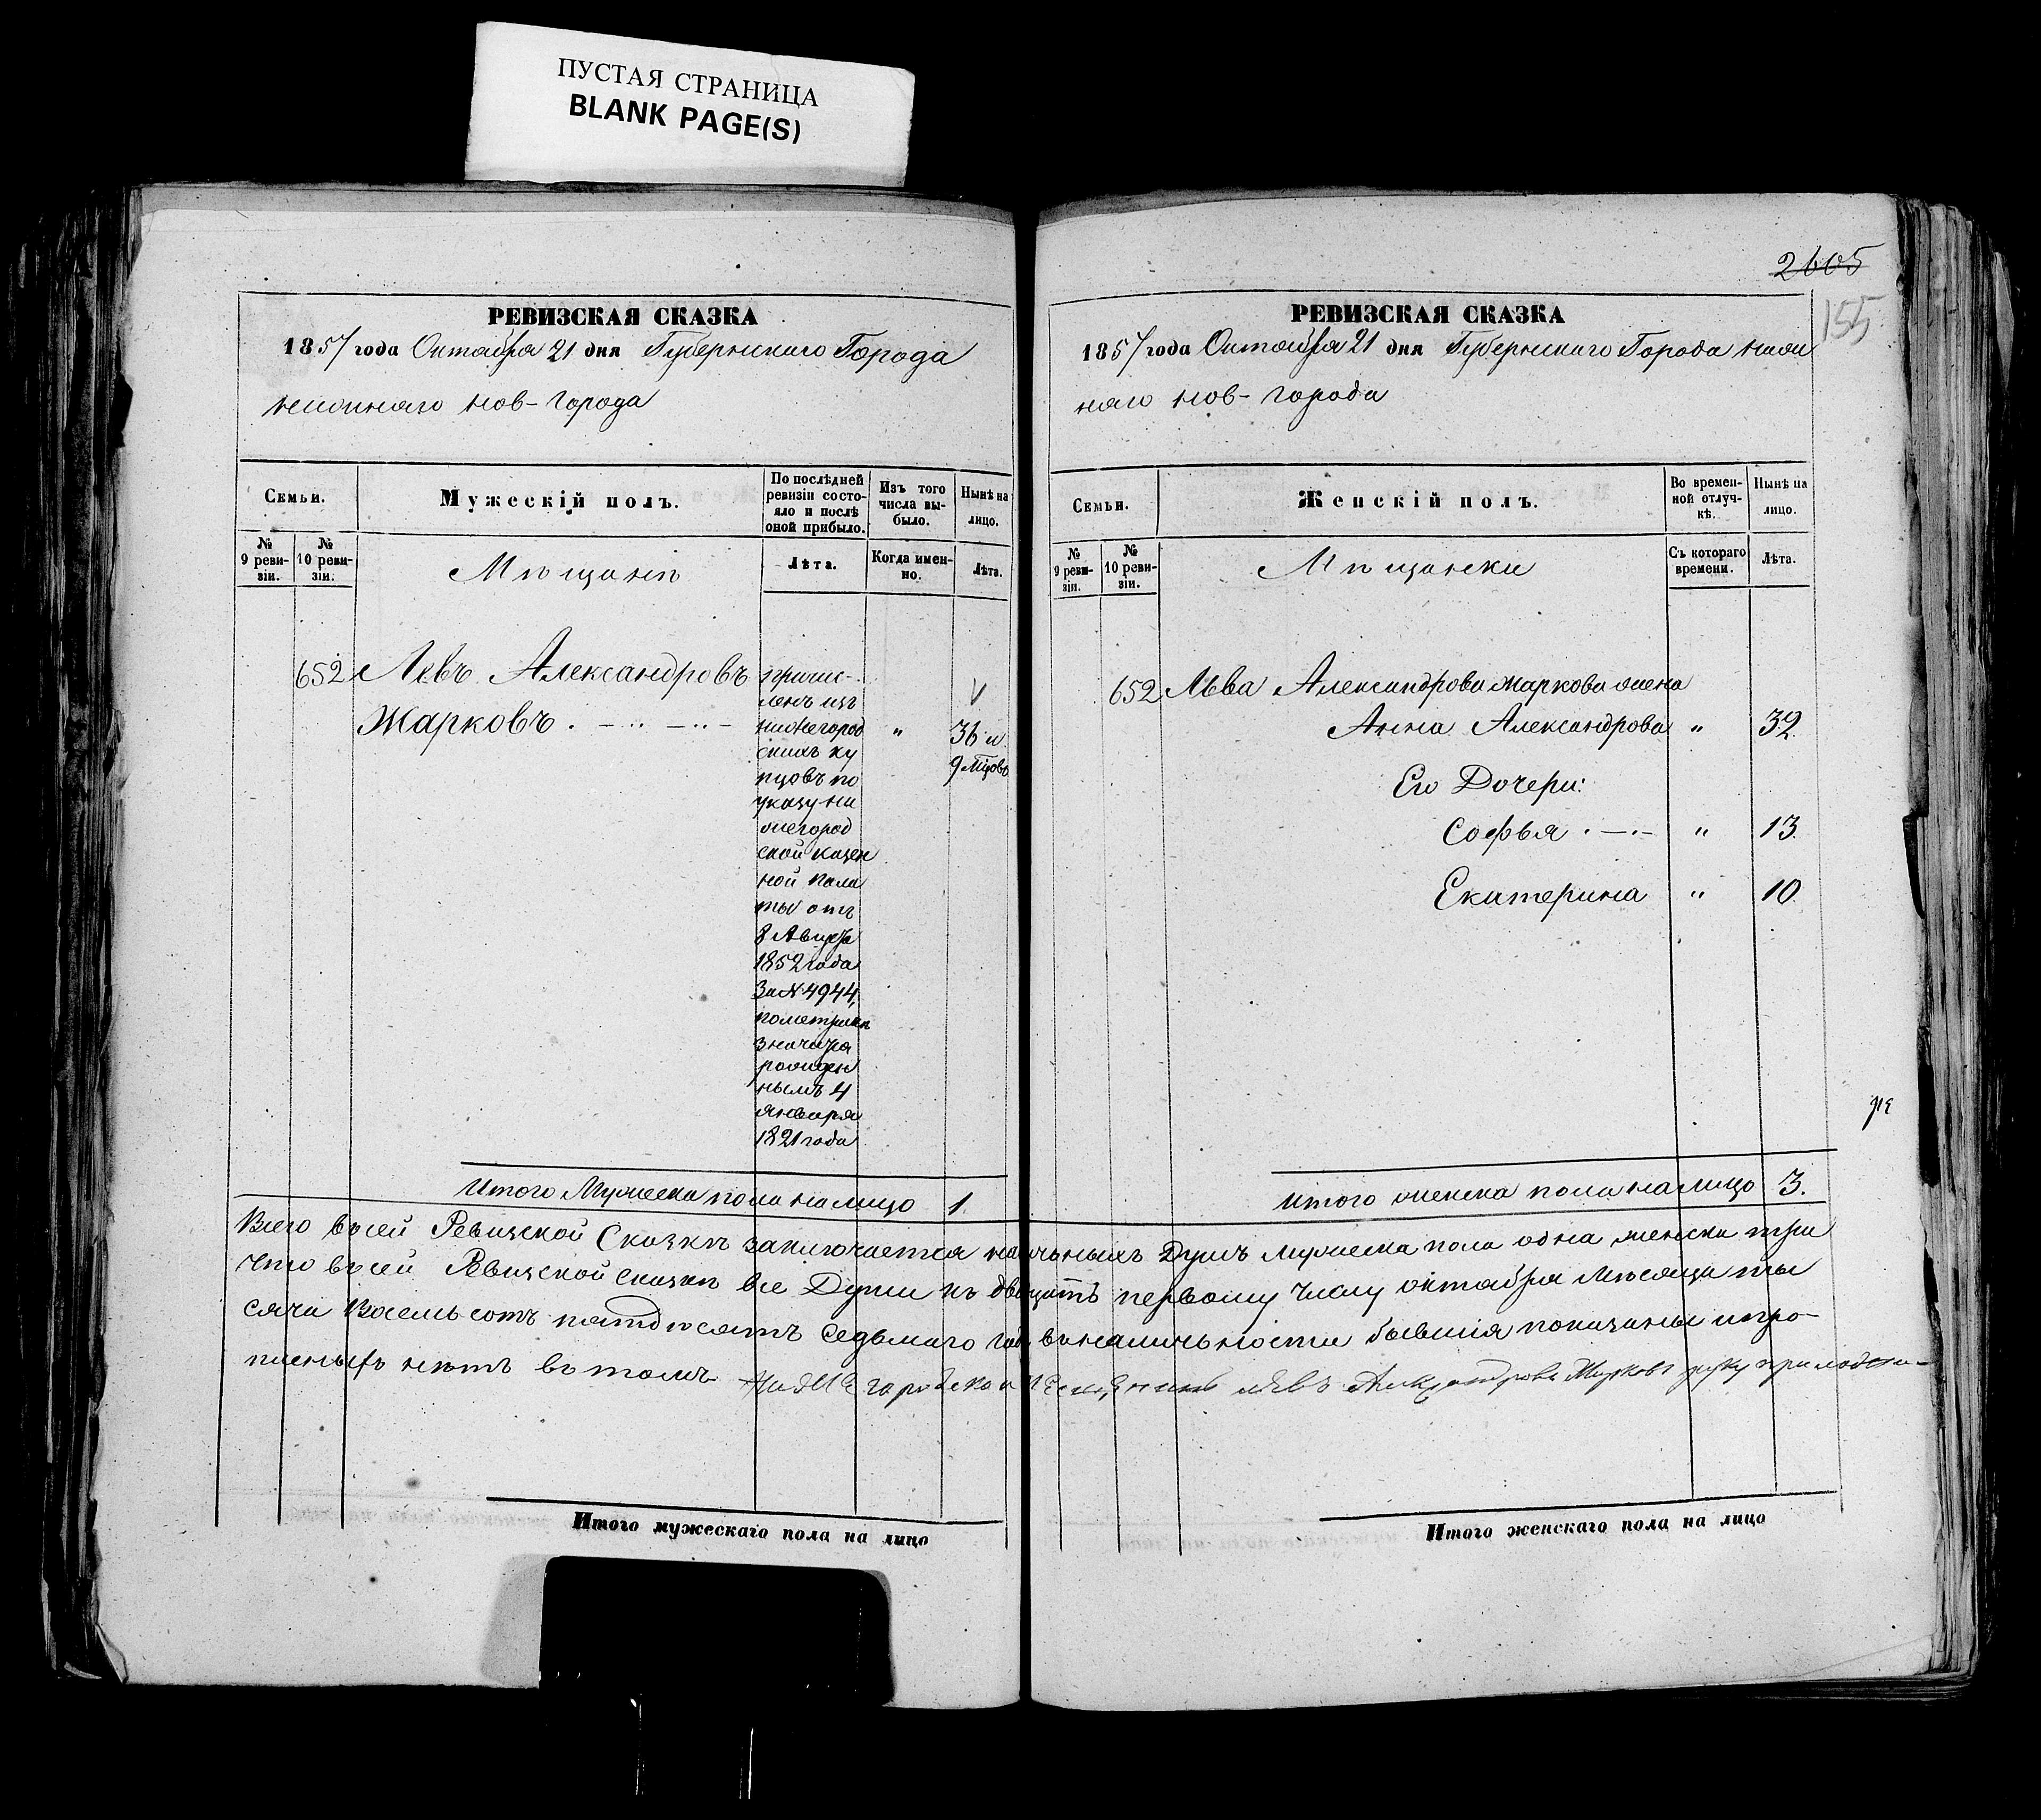 ПУСТАЯ СТРАНИЦА
BLANK PAGE(S)
РЕВИЗСКАЯ СКАЗКА
1857 года Октября 21 дня Губернскаго Города
нижняго нов-города
Семьи.
Мужескій полъ.
По послѣдней ревизіи состояло и послѣ оной прибыло.
Изъ того числа выбыло.
Нынѣ на лицо.
№ 9 ревизіи.
№ 10 ревизіи.
Мѣщанѣ
Лѣта.
Когда именно.
Лѣта.
652 Левъ Александровъ
Жарковъ . — .. — .. —
причис-
ленъ изъ
нижегород
скихъ ку
пцовъ по
указу ни
жегород
ской казен
ной пала
ты отъ
8 Августа
1852 года
За № 4944,
пометрикѣ
значится
рожден
нымъ 4
января
1821 года
"
36 и
9 мѣцовъ
Итого Мужеска пола налицо 1
Итого мужескаго пола на лицо
2605
155
РЕВИЗСКАЯ СКАЗКА
1857 года Октября 21 дня Губернскаго Города ниж
няго нов-города
Семьи.
Женскій полъ.
Во временной отлучкѣ.
Нынѣ на лицо.
№ 9 ревизіи.
№ 10 ревизіи.
Мѣщанки
Съ котораго времени.
Лѣта.
652 Льва Александрова Жаркова жена
Анна Александрова " 32
Его Дочери:
Софья . — . — " 13
Екатерина " 10
Итого женска пола налицо 3.
Всего всей Ревизской Сказкѣ заключается наличныхъ Душъ мужеска пола одна женска три
Что всей Ревизской сказкѣ все Души къ двадцать первому числу октября мѣсяца ты
сяча восемь сотъ пятдѣсятъ седьмаго года вналичьности бывшія показаны ипро-
писныхъ нѣтъ въ томъ Левъ Александровъ Жарковъ руку приложи-
Итого женскаго пола на лицо